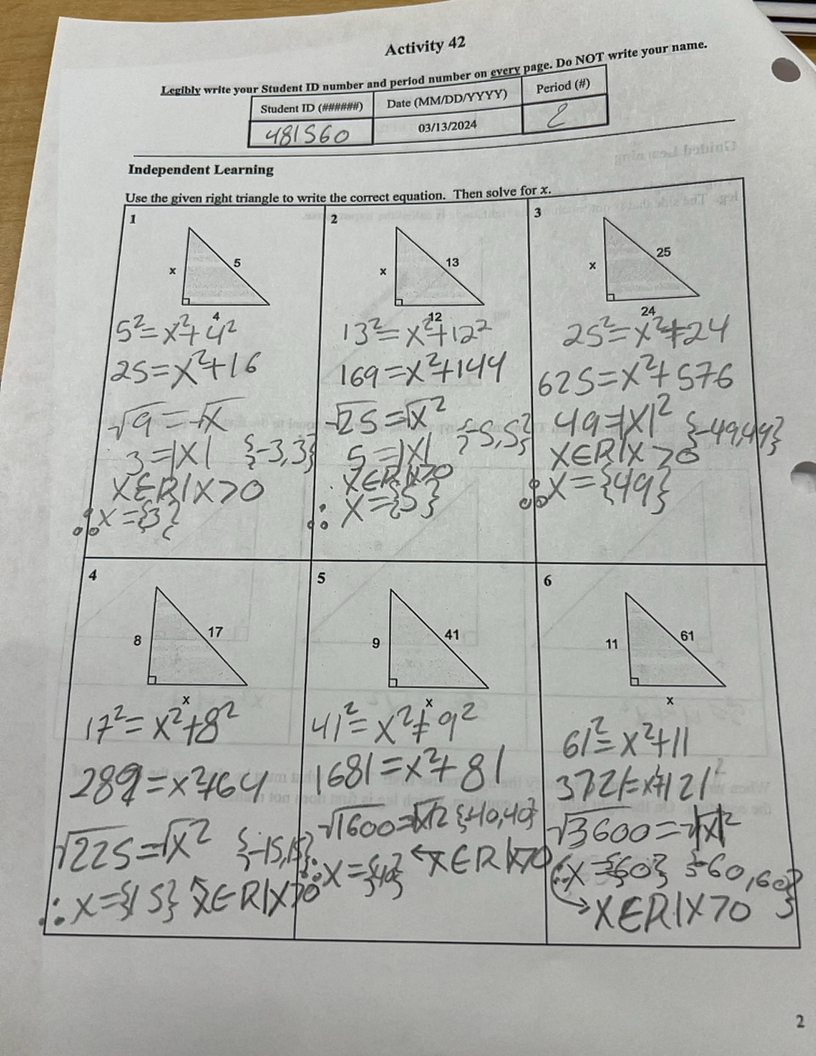 Activity 42
Legibly write your Student ID number and period number on every page. Do NOT write your name.
Student ID (######) Date (MM/DD/YYYY) Period (#)
481560 03/13/2024 2
Independent Learning
Use the given right triangle to write the correct equation. Then solve for x.
1
x 5
4
5²=x²+4²
25=x²+16
√9=√x
3=|x| {-3,3}
x∈R|x>0
∴x={3}
2
x 13
12
13²=x²+12²
169=x²+144
√25=√x²
5=|x| {-5,5}
x∈R|x>0
∴x={5}
3
x 25
24
25²=x²+24
625=x²+576
49=|x|² {-49,49}
x∈R|x>0
∴x={49}
4
8 17
x
17²=x²+8²
289=x²+64
√225=√x² {-15,15}
∴x={15} x∈R|x>0
5
9 41
x
41²=x²+9²
1681=x²+81
√1600=√x² {-40,40}
∴x={40} x∈R|x>0
6
11 61
x
61²=x²+11
3721=x²+121
√3600=√|x|²
∴x={60} {-60,60}
x∈R|x>0
2